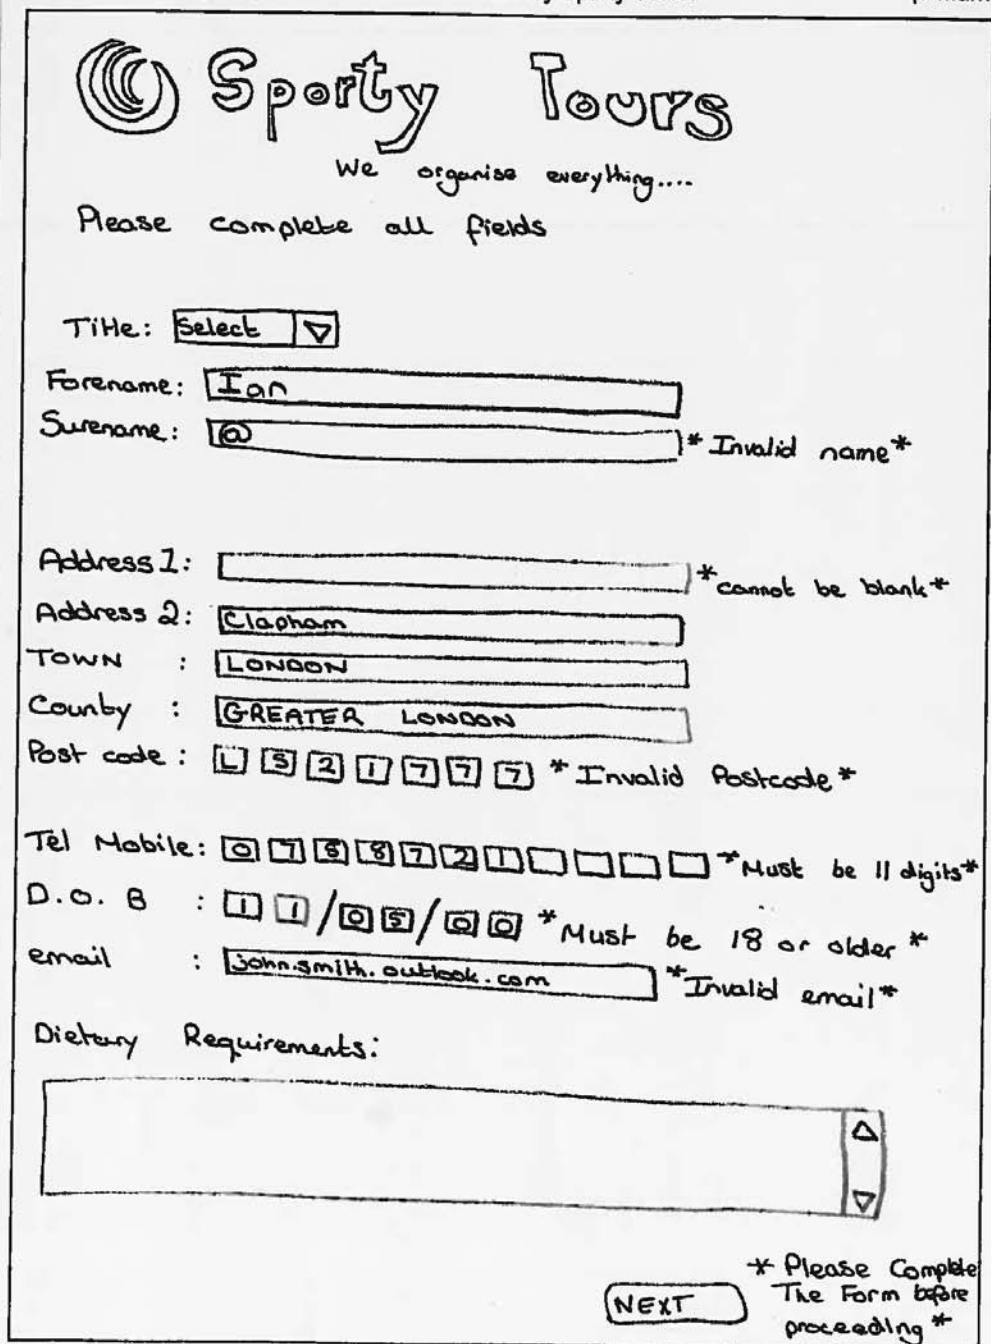 Sporty Tours
We organise everything....
Please complete all fields
Title: Select
Forename: Ian
Surename: @ *Invalid name*
Address 1: *cannot be blank*
Address 2: Clapham
TOWN : LONDON
County : GREATER LONDON
Post code : L S 2 1 7 7 7 *Invalid Postcode*
Tel Mobile: 0 7 8 8 7 2 1 *Must be 11 digits*
D.O.B : 1 1 / 0 5 / 0 0 *Must be 18 or older*
email : john.smith.outlook.com *Invalid email*
Dietary Requirements:
* Please Complete
NEXT The Form before
proceeding *